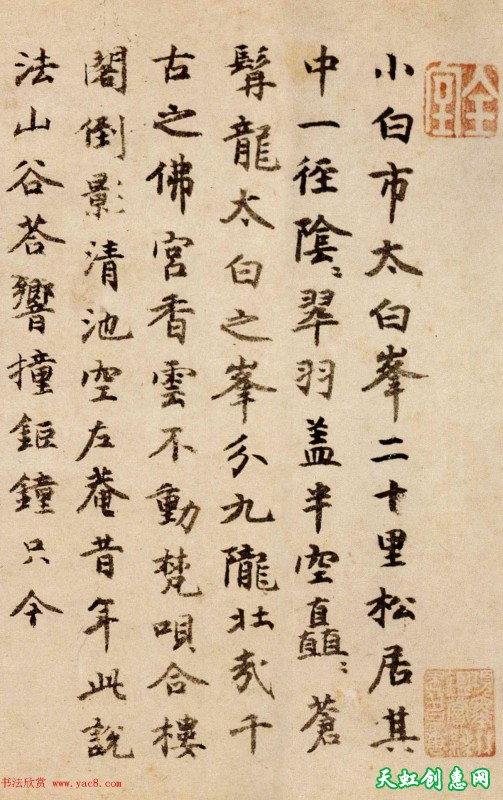 全室
小白市太白峯二十里松居其
中一徑陰〻翠羽盖半空矗〻蒼
髯龍太白之峯分九隴壯哉千
古之佛宮香雲不動梵唄合樓
閣倒影清池空左菴昔年此說
法山谷荅響撞鉅鐘只今
书法欣赏 www.yac8.com
天虹创意网